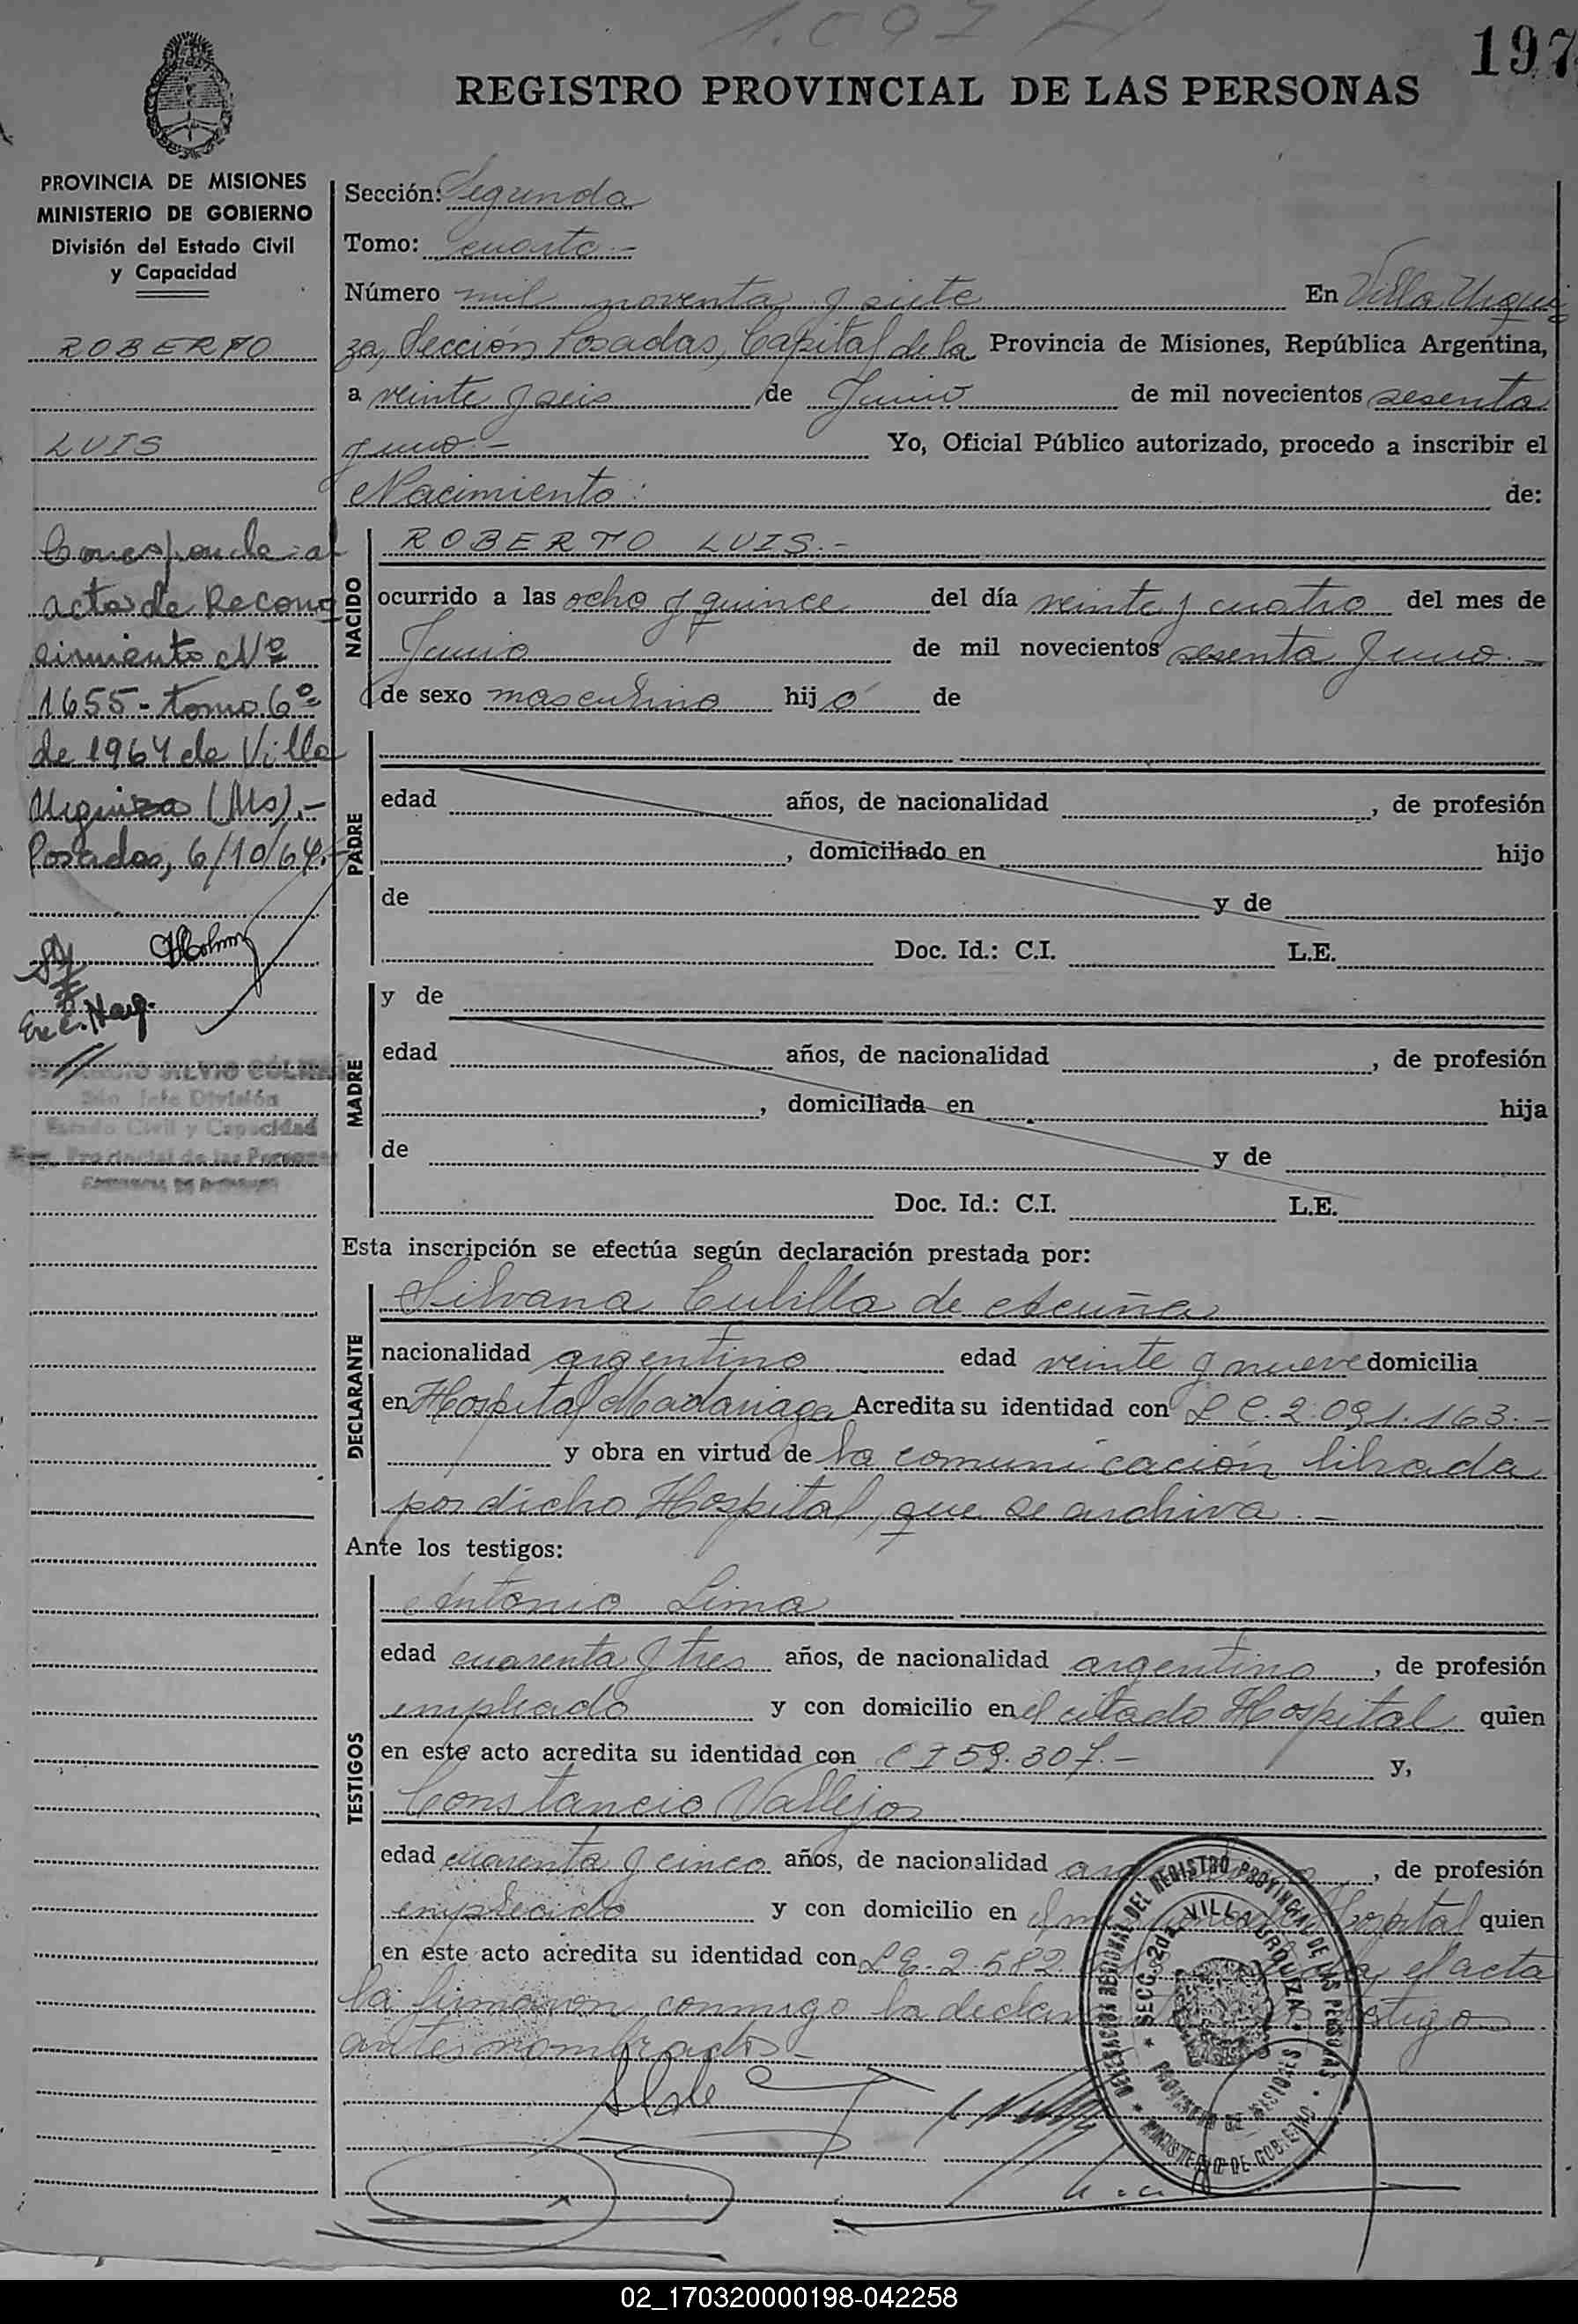 1.097
197
REGISTRO PROVINCIAL DE LAS PERSONAS
PROVINCIA DE MISIONES
MINISTERIO DE GOBIERNO
División del Estado Civil
y Capacidad
ROBERTO
LUIS
Corresponde al
acta de Recono
cimiento Nº
1655 - tomo 6º
de 1964 de Villa
Urquiza (Ms).-
Posadas, 6/10/64.-
SILVIO
Jefe División
Estado Civil y Capacidad
Reg. Provincial de las Personas
Sección: Segunda
Tomo: cuarto.-
Número mil noventa y siete En Villa Urqui
za, Sección Posadas, Capital de la Provincia de Misiones, República Argentina,
a veinte y seis de Junio de mil novecientos sesenta
y uno.- Yo, Oficial Público autorizado, procedo a inscribir el
Nacimiento: de:
NACIDO
ROBERTO LUIS.-
ocurrido a las ocho y quince del día veinte y cuatro del mes de
Junio de mil novecientos sesenta y uno.-
de sexo masculino hijo de
PADRE
edad años, de nacionalidad , de profesión
, domiciliado en hijo
de y de
Doc. Id.: C.I. L.E.
MADRE
y de
edad años, de nacionalidad , de profesión
, domiciliada en hija
de y de
Doc. Id.: C.I. L.E.
Esta inscripción se efectúa según declaración prestada por:
DECLARANTE
Silvana Cubilla de Acuña
nacionalidad argentina edad veinte y nueve domicilia
en Hospital Madariaga Acredita su identidad con L C. 2.091.163.-
y obra en virtud de la comunicación librada
por dicho Hospital, que se archiva.-
Ante los testigos:
TESTIGOS
Antonio Lima
edad cuarenta y tres años, de nacionalidad argentino , de profesión
empleado y con domicilio en el citado Hospital quien
en este acto acredita su identidad con C I 59.307.- y,
Constancio Vallejos
edad cuarenta y cinco años, de nacionalidad , de profesión
empleado y con domicilio en el Hospital quien
en este acto acredita su identidad con L E. 2.582 el acta
la firmaron conmigo la testigos
antes nombrados.-
DELEGACION REGIONAL DEL REGISTRO PROVINCIAL DE LAS PERSONAS
MINISTERIO DE GOBIERNO
SECC. 2da. VILLA URQUIZA
PROVINCIA DE MISIONES
02_170320000198-042258